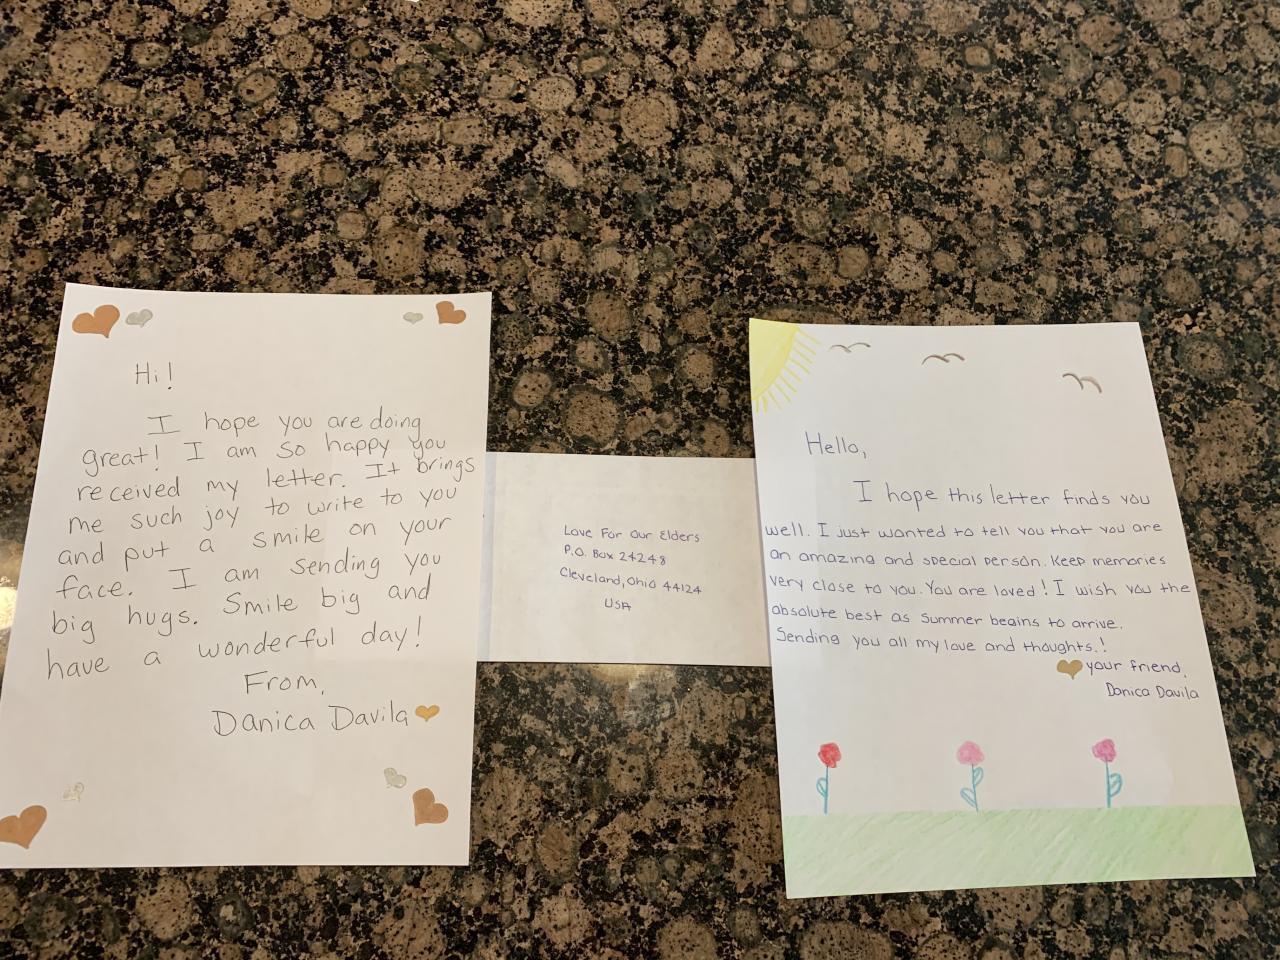 Hi!
I hope you are doing
great! I am so happy you
received my letter. It brings
me such joy to write to you
and put a smile on your
face. I am sending you
big hugs. Smile big and
have a wonderful day!
From,
Danica Davila
Love For Our Elders
P.O. Box 24248
Cleveland, Ohio 44124
USA
Hello,
I hope this letter finds you
well. I just wanted to tell you that you are
an amazing and special person. Keep memories
very close to you. You are loved! I wish you the
absolute best as summer begins to arrive.
Sending you all my love and thoughts.!
your friend,
Danica Davila